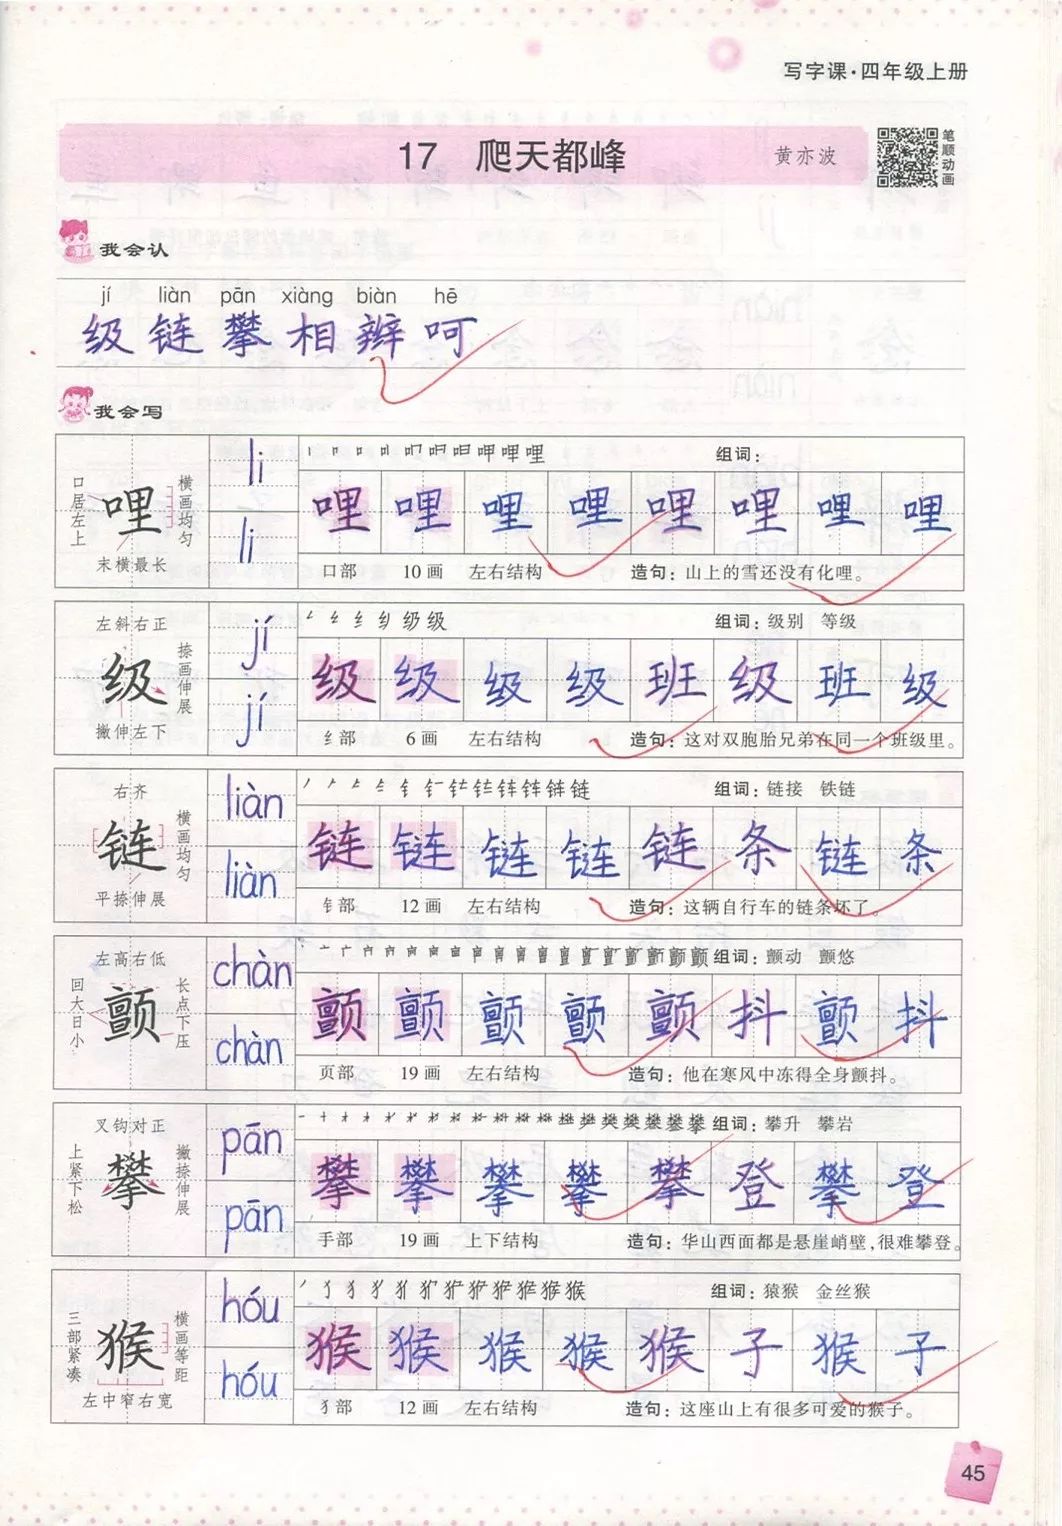 写字课·四年级上册
17 爬天都峰 黄亦波
笔顺动画
我会认
jí liàn pān xiàng biàn hē
级 链 攀 相 辫 呵
我会写
口居左上
哩
横画均匀
末横最长
li
li
组词:
哩 哩 哩 哩 哩 哩 哩 哩
口部 10画 左右结构 造句:山上的雪还没有化哩。
左斜右正
级
捺画伸展
撇伸左下
jí
jí
组词:级别 等级
级 级 级 级 班 级 班 级
纟部 6画 左右结构 造句:这对双胞胎兄弟在同一个班级里。
右齐
链
横画均匀
平捺伸展
liàn
liàn
组词:链接 铁链
链 链 链 链 链 条 链 条
钅部 12画 左右结构 造句:这辆自行车的链条坏了。
左高右低
回大日小
颤
长点下压
chàn
chàn
组词:颤动 颤悠
颤 颤 颤 颤 颤 抖 颤 抖
页部 19画 左右结构 造句:他在寒风中冻得全身颤抖。
叉钩对正
上紧下松
攀
撇捺伸展
pān
pān
组词:攀升 攀岩
攀 攀 攀 攀 攀 登 攀 登
手部 19画 上下结构 造句:华山西面都是悬崖峭壁,很难攀登。
三部紧凑
猴
横画等距
左中窄右宽
hóu
hóu
组词:猿猴 金丝猴
猴 猴 猴 猴 猴 子 猴 子
犭部 12画 左右结构 造句:这座山上有很多可爱的猴子。
45